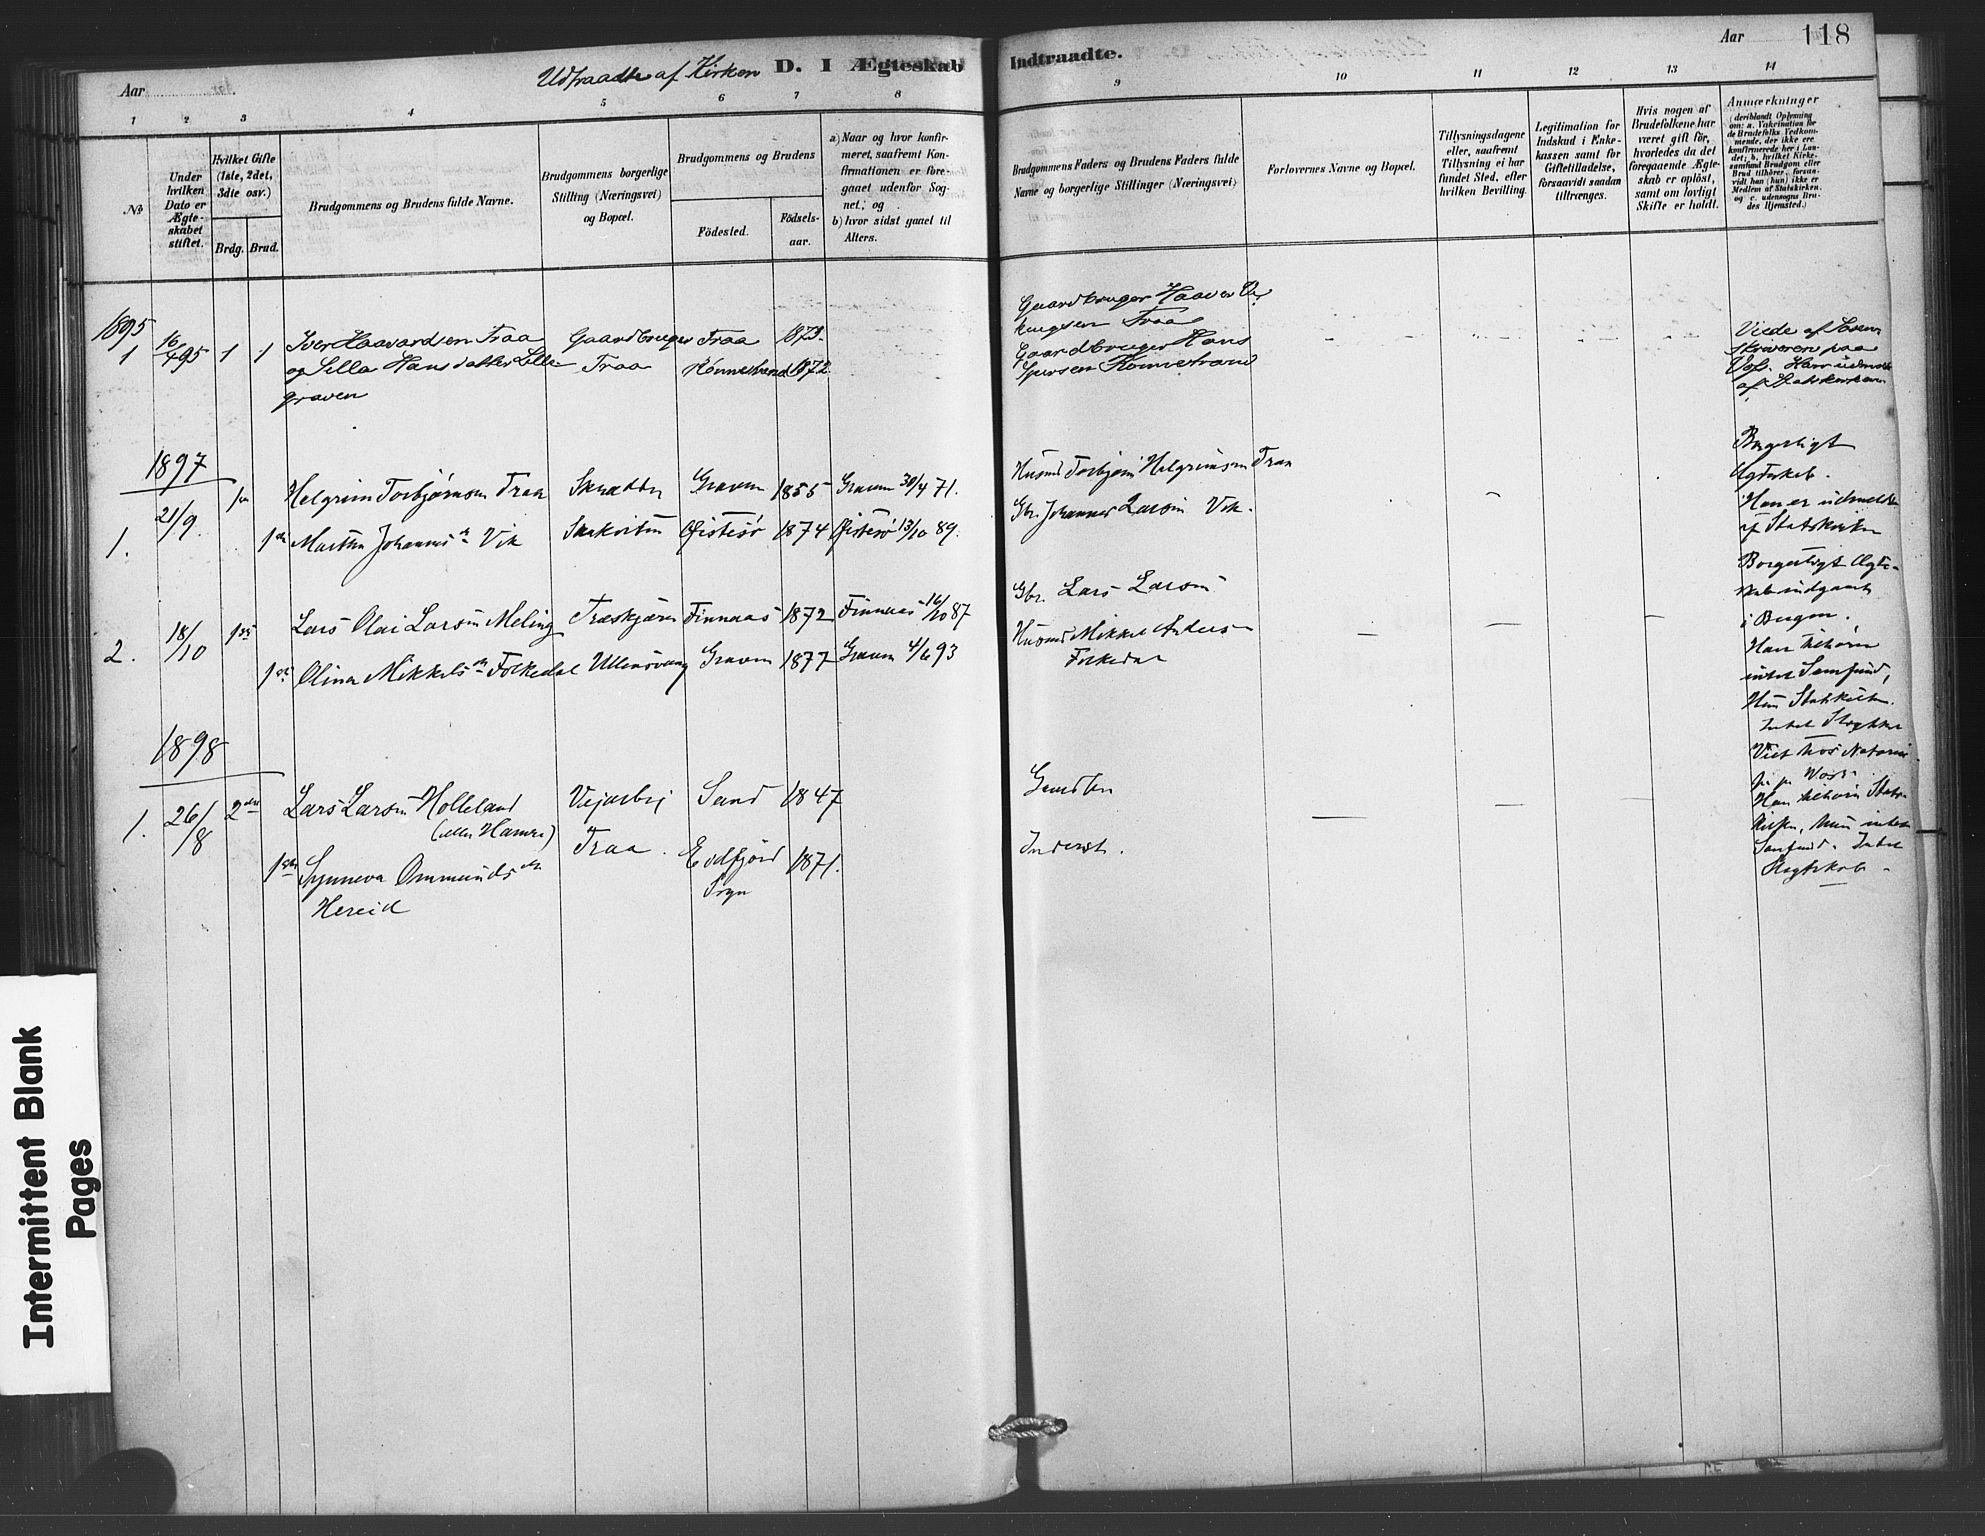 Aar
Udtraadte af Kirken D. I Ægteskab Indtraadte.
Aar 118
1 2 3 4 5 6 7 8 9 10 11 12 13 14
№
Under hvilken Dato er Ægteskabet stiftet.
Hvilket Gifte (1ste, 2det, 3die osv.)
Brdg. Brud.
Brudgommens og Brudens fulde Navne.
Brudgommens borgerlige Stilling (Næringsvei) og Bopæl.
Brudgommens og Brudens
Fødested.
Fødsels-aar.
a) Naar og hvor konfirmeret, saafremt Konfirmationen er foregaaet udenfor Sognet; og
b) hvor sidst gaaet til Alters.
Brudgommens Faders og Brudens Faders fulde Navne og borgerlige Stillinger (Næringsvei)
Forlovernes Navne og Bopæl.
Tillysningsdagene eller, saafremt Tillysning ei har fundet Sted, efter hvilken Bevilling.
Legitimation for Indskud i Enkekassen samt for Giftetilladelse, forsaavidt saadan tiltrænges.
Hvis nogen af Brudefolkene har været gift før, hvorledes da det foregaaende Ægteskab er opløst, samt om lovligt Skifte er holdt.
Anmærkninger
(deriblandt Oplysning om: a. Vakcination for de Brudefolks Vedkommende, der ikke ere konfirmerede her i Landet; b. hvilket Kirkesamfund Brudgom eller Brud tilhører, forsaavidt han (hun) ikke er Medlem af Statskirken, og c. udensogns Brudes Hjemsted.)
1895
1 16/4 95 1 1 Iver Haavardsen Traa Gaardbruger Traa 1873.
og Lilla Hansdatter Lille- Traa 1872
graven
Gaardbruger Haaver
Traa
Gaardbruger Hans
Viede af Soren-
skriveren paa
af Statskirken
1897
21/9. Helgrim Torbjørnsen Traa Skrædder Graven 1855 Graven 30/4 71.
1. Johannes Vik Østesø 1874 Østesø 13/10 89.
Husmd Torbjørn Helgrimsen Traa
Gbr. Johannes Larsen Vik.
Borgerligt
Ægtskab.
Han er udmeldt
af Statskirken
2. 18/10 Lars Olai Larsen Meling Finnaas 1872 Finnaas 16/10 87
Olina Mikkels Folkedal Ullensvang Graven 1877 Graven 4/6 93
Gbr. Lars Larsen
Husmd Mikkel Anders
Folkedal
Borgerligt Ægte-
skab indgaaet
i Bergen.
Han tilhører
intet Samfund,
Hun Statskirken.
1898
1. 26/8 2 Lars Larsen Holleland Veiarbej Sand 1847
(eller Hamre) Traa.
Synneva Ommunds Eidfjord 1871.
Hereid Sogn
Gaardbr
Inderst.
Viet hos Notarius
p. p. Voss.
Han tilhører Stats-
kirken, hun intet
Samfund. Intet
Slegtskab
Intermittent Blank
Pages